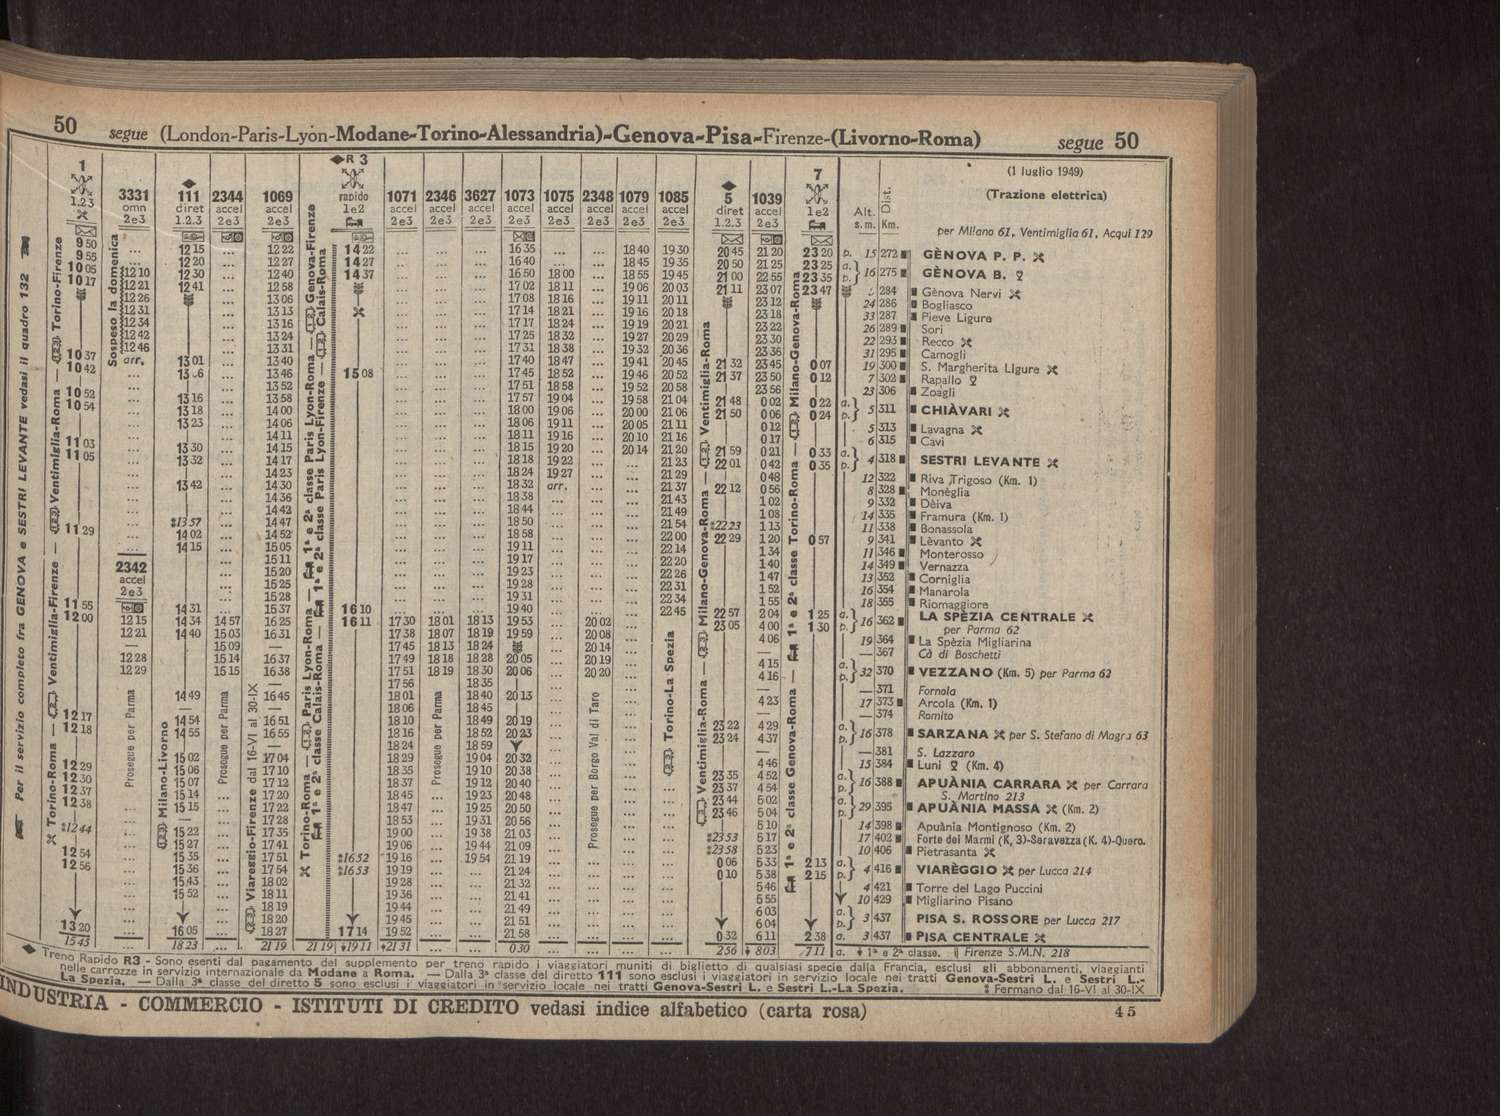 50 segue (London-Paris-Lyón-Modane-Torino-Alessandria)-Genova-Pisa-Firenze-(Livorno-Roma) segue 50
1 3331 111 2344 1069 R 3 1071 2346 3627 1073 1075 2348 1079 1085 5 1039 7
1.2.3 omn 2e3 diret 1.2.3 accel 2e3 accel 2e3 rapido 1e2 accel 2e3 accel 2e3 accel 2e3 accel 2e3 accel 2e3 accel 2e3 accel 2e3 accel 2e3 diret 1.2.3 accel 2e3 1e2 Alt. s.m. Dist. Km.
(1 luglio 1949)
(Trazione elettrica)
per Milano 61, Ventimiglia 61, Acqui 129
9 50 ... 12 15 ... 12 22 14 22 ... ... ... 16 35 ... ... 18 40 19 30 20 45 21 20 23 20 p. 15 272 GÈNOVA P. P.
9 55 ... 12 20 ... 12 27 14 27 ... ... ... 16 40 ... ... 18 45 19 35 20 50 21 25 23 25 a.
10 05 12 10 12 30 ... 12 40 14 37 ... ... ... 16 50 18 00 ... 18 55 19 45 21 00 22 55 23 35 p. 16 275 GÈNOVA B.
10 17 12 21 12 41 ... 12 58 ... ... ... 17 02 18 11 ... 19 06 20 03 21 11 23 07 23 47 284 Gènova Nervi
12 26 ... 13 06 ... ... ... 17 08 18 16 ... 19 11 20 11 23 12 24 286 Bogliasco
12 31 ... 13 13 ... ... ... 17 14 18 21 ... 19 16 20 18 23 18 33 287 Pieve Ligure
12 34 ... 13 16 ... ... ... 17 17 18 24 ... 19 19 20 21 23 22 26 289 Sori
12 42 ... 13 24 ... ... ... 17 25 18 32 ... 19 27 20 29 23 30 22 293 Recco
12 46 ... 13 31 ... ... ... 17 31 18 38 ... 19 32 20 36 23 36 31 295 Camogli
10 37 arr. 13 01 ... 13 40 ... ... ... 17 40 18 47 ... 19 41 20 45 21 32 23 45 0 07 19 300 S. Margherita Ligure
10 42 ... ... 13 46 15 08 ... ... ... 17 45 18 52 ... 19 46 20 52 21 37 23 50 0 12 7 302 Rapallo
... ... 13 52 ... ... ... 17 51 18 58 ... 19 52 20 58 23 56 23 306 Zoagli
10 52 ... 13 16 ... 13 58 ... ... ... 17 57 19 04 ... 19 58 21 04 21 48 0 02 0 22 a.
10 54 ... 13 18 ... 14 00 ... ... ... 18 00 19 06 ... 20 00 21 06 21 50 0 06 0 24 p. 5 311 CHIÀVARI
... 13 23 ... 14 06 ... ... ... 18 06 19 11 ... 20 05 21 11 0 12 5 313 Lavagna
... ... 14 11 ... ... ... 18 11 19 16 ... 20 10 21 16 0 17 6 315 Cavi
11 03 ... 13 30 ... 14 15 ... ... ... 18 15 19 20 ... 20 14 21 20 21 59 0 21 0 33 a.
11 05 ... 13 32 ... 14 17 ... ... ... 18 18 19 22 ... ... 21 23 22 01 0 42 0 35 p. 4 318 SESTRI LEVANTE
... ... 14 23 ... ... ... 18 24 19 27 ... ... 21 29 0 48 12 322 Riva Trigoso (Km. 1)
... 13 42 ... 14 30 ... ... ... 18 32 arr. ... ... 21 37 22 12 0 56 8 328 Monèglia
... ... 14 36 ... ... ... 18 38 ... ... ... 21 43 1 02 9 332 Dèiva
... ... 14 42 ... ... ... 18 44 ... ... ... 21 49 1 08 14 335 Framura (Km. 1)
11 29 ... 13 57 ... 14 47 ... ... ... 18 50 ... ... ... 21 54 22 23 1 13 11 338 Bonassola
... 14 02 ... 14 52 ... ... ... 18 58 ... ... ... 22 00 22 29 1 20 0 57 9 341 Lèvanto
... 14 15 ... 15 05 ... ... ... 19 11 ... ... ... 22 14 1 34 11 346 Monterosso
2342 ... 15 11 ... ... ... 19 17 ... ... ... 22 20 1 40 14 349 Vernazza
accel ... 15 20 ... ... ... 19 23 ... ... ... 22 26 1 47 13 352 Corniglia
2e3 ... 15 25 ... ... ... 19 28 ... ... ... 22 31 1 52 16 354 Manarola
... 15 28 ... ... ... 19 31 ... ... ... 22 34 1 55 18 355 Riomaggiore
11 55 14 31 ... 15 37 16 10 ... ... ... 19 40 ... ... ... 22 45 22 57 2 04 1 25 a.
12 00 12 15 14 34 14 57 16 25 16 11 17 30 18 01 18 13 19 53 ... 20 02 ... 23 05 4 00 1 30 p. 16 362 LA SPÈZIA CENTRALE
per Parma 62
12 21 14 40 15 03 16 31 17 38 18 07 18 19 19 59 ... 20 08 ... 4 06 19 364 La Spèzia Migliarina
— 15 09 — 17 45 18 13 18 24 ... 20 14 ... — — 367 Cà di Boschetti
12 28 15 14 16 37 17 49 18 18 18 28 20 05 ... 20 19 ... 4 15 a.
12 29 15 15 16 38 17 51 18 19 18 30 20 06 ... 20 20 ... 4 16 p. 32 370 VEZZANO (Km. 5) per Parma 62
— 17 56 18 35 — — — 371 Fornola
14 49 16 45 18 01 18 40 20 13 4 23 17 373 Arcola (Km. 1)
— — 18 06 18 45 — — — 374 Romito
12 17 14 54 16 51 18 10 18 49 20 19 23 22 4 29 a.
12 18 14 55 16 55 18 16 18 52 20 23 23 24 4 37 p. 16 378 SARZANA per S. Stefano di Magra 63
— — 18 24 18 59 — — 381 S. Lazzaro
15 02 17 04 18 29 19 04 20 32 4 46 15 384 Luni (Km. 4)
12 29 15 06 17 10 18 35 19 10 20 38 23 35 4 52 a.
12 30 15 07 17 12 18 37 19 12 20 40 23 37 4 54 p. 16 388 APUÀNIA CARRARA per Carrara
S. Martino 213
12 37 15 14 17 20 18 45 19 23 20 48 23 44 5 02 a.
12 38 15 15 17 22 18 47 19 25 20 50 23 46 5 04 p. 29 395 APUÀNIA MASSA (Km. 2)
— 17 28 18 53 19 31 20 56 5 10 14 398 Apuània Montignoso (Km. 2)
12 44 15 22 17 35 19 00 19 38 21 03 23 53 5 17 17 402 Forte dei Marmi (K. 3)-Seravezza (K. 4)-Querc.
15 27 17 41 19 06 19 44 21 09 23 58 5 23 10 406 Pietrasanta
12 54 15 35 17 51 16 52 19 16 19 54 21 19 0 06 5 33 2 13 a.
12 56 15 36 17 54 16 53 19 19 ... 21 24 0 10 5 38 2 15 p. 4 416 VIARÈGGIO per Lucca 214
15 43 18 02 19 28 ... 21 32 5 46 4 421 Torre del Lago Puccini
15 52 18 11 19 36 ... 21 41 5 55 10 429 Migliarino Pisano
18 19 19 44 ... 21 49 6 03 a.
18 20 19 45 ... 21 51 6 04 p. 3 437 PISA S. ROSSORE per Lucca 217
13 20 16 05 18 27 17 14 19 52 ... 21 58 0 32 6 11 2 38 a. 3 437 PISA CENTRALE
15 45 18 23 21 19 21 19 19 11 21 31 ... 0 30 2 56 8 03 7 11 a. 1ª e 2ª classe. Firenze S.M.N. 218
Per il servizio completo fra GENOVA e SESTRI LEVANTE vedasi il quadro 132
Torino-Roma — Ventimiglia-Firenze — Ventimiglia-Roma — Torino-Firenze
Sospeso la domenica
Prosegue per Parma
Milano-Livorno
Prosegue per Parma
Viareggio-Firenze dal 16-VI al 30-IX
Torino-Roma — Paris Lyon-Roma — 1ª e 2ª classe Paris Lyon-Roma — Genova-Firenze
1ª e 2ª classe Calais-Roma — 1ª e 2ª classe Paris Lyon-Firenze — Calais-Roma
Prosegue per Parma
Prosegue per Borgo Val di Taro
Torino-La Spezia
Ventimiglia-Roma — Milano-Genova-Roma — Ventimiglia-Roma
1ª e 2ª classe Genova-Roma — 1ª e 2ª classe Torino-Roma — Milano-Genova-Roma
Treno Rapido R3 - Sono esenti dal pagamento del supplemento per treno rapido i viaggiatori muniti di biglietto di qualsiasi specie dalla Francia, esclusi gli abbonamenti, viaggianti
nelle carrozze in servizio internazionale da Modane a Roma. — Dalla 3ª classe del diretto 111 sono esclusi i viaggiatori in servizio locale nei tratti Genova-Sestri L. e Sestri L.-
La Spezia. — Dalla 3ª classe del diretto 5 sono esclusi i viaggiatori in servizio locale nei tratti Genova-Sestri L. e Sestri L.-La Spezia. Fermano dal 16-VI al 30-IX
INDUSTRIA - COMMERCIO - ISTITUTI DI CREDITO vedasi indice alfabetico (carta rosa) 45